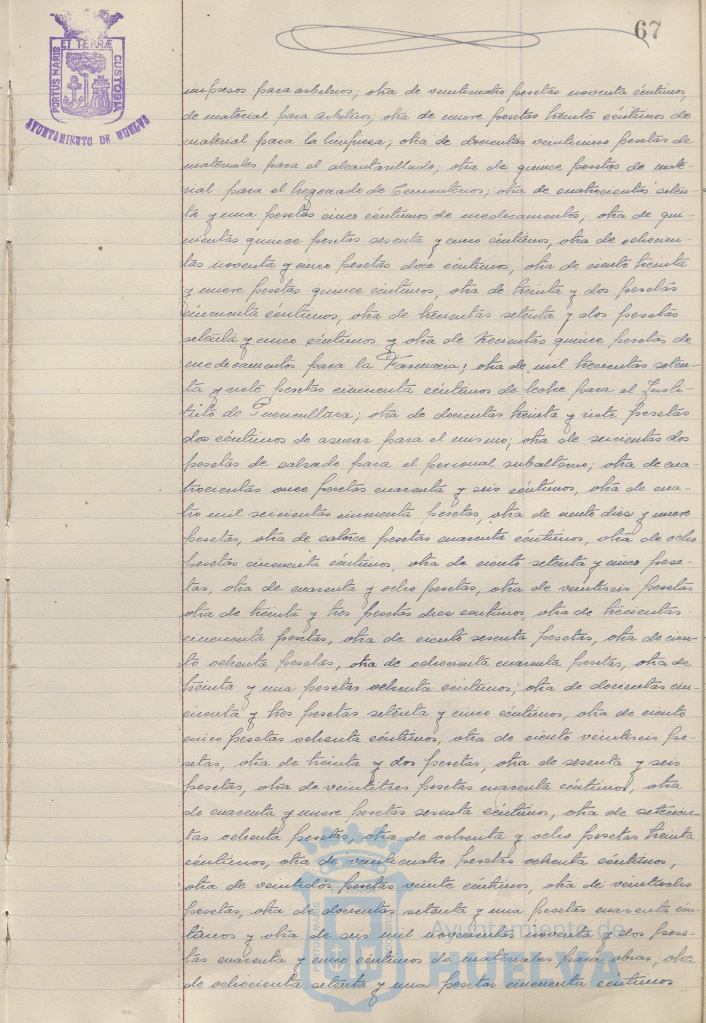 67
PORTUS MARIS ET TERRÆ CUSTODIA
AYUNTAMIENTO DE HUELVA
impresos para arbitrios; otra de veinticuatro pesetas noventa céntimos,
de material para arbitrios; otra de nueve pesetas treinta céntimos de
material para la limpieza; otra de doscientas veinticinco pesetas de
materiales para el alcantarillado; otra de quince pesetas de mate-
rial para el Negociado de Cementerios; otra de cuatrocientas seten-
ta y una pesetas cinco céntimos de medicamentos; otra de qui-
nientas quince pesetas sesenta y cinco céntimos, otra de ochocien-
tas noventa y cinco pesetas doce céntimos, otra de ciento treinta
y nueve pesetas quince céntimos, otra de treinta y dos pesetas
cincuenta céntimos, otra de trescientas setenta y dos pesetas
setenta y cinco céntimos y otra de trescientas quince pesetas de
medicamentos para la Farmacia; otra de mil trescientas seten-
ta y siete pesetas cincuenta céntimos de leche para el Insti-
tuto de Puericultura; otra de doscientas treinta y siete pesetas
dos céntimos de azucar para el mismo; otra de seiscientas dos
pesetas de calzado para el personal subalterno; otra de cua-
trocientas once pesetas cuarenta y seis céntimos, otra de cua-
tro mil seiscientas cincuenta pesetas, otra de ciento diez y nueve
pesetas, otra de catorce pesetas cuarenta céntimos, otra de ocho
pesetas cincuenta céntimos, otra de ciento setenta y cinco pese-
tas, otra de cuarenta y ocho pesetas, otra de veintiseis pesetas
otra de treinta y tres pesetas diez céntimos, otra de trescientas
cincuenta pesetas, otra de ciento sesenta pesetas, otra de cien-
to ochenta pesetas, otra de ochocienta cuarenta pesetas, otra de
treinta y una pesetas ochenta céntimos, otra de doscientas cin-
cuenta y tres pesetas setenta y cinco céntimos, otra de ciento
cinco pesetas ochenta céntimos, otra de ciento veintiseis pe-
setas, otra de treinta y dos pesetas, otra de sesenta y seis
pesetas, otra de veintitres pesetas cuarenta céntimos, otra
de cuarenta y nueve pesetas sesenta céntimos, otra de setecien-
tas ochenta pesetas, otra de ochenta y ocho pesetas treinta
céntimos, otra de veinticuatro pesetas ochenta céntimos,
otra de veintidós pesetas veinte céntimos, otra de veintiocho
pesetas, otra de doscientas setenta y una pesetas cuarenta cén-
timos y otra de seis mil novecientas noventa y dos pese-
tas cuarenta y cinco céntimos de materiales para obras; otra
de ochocientas setenta y una pesetas cincuenta céntimos
Ayuntamiento de
HUELVA